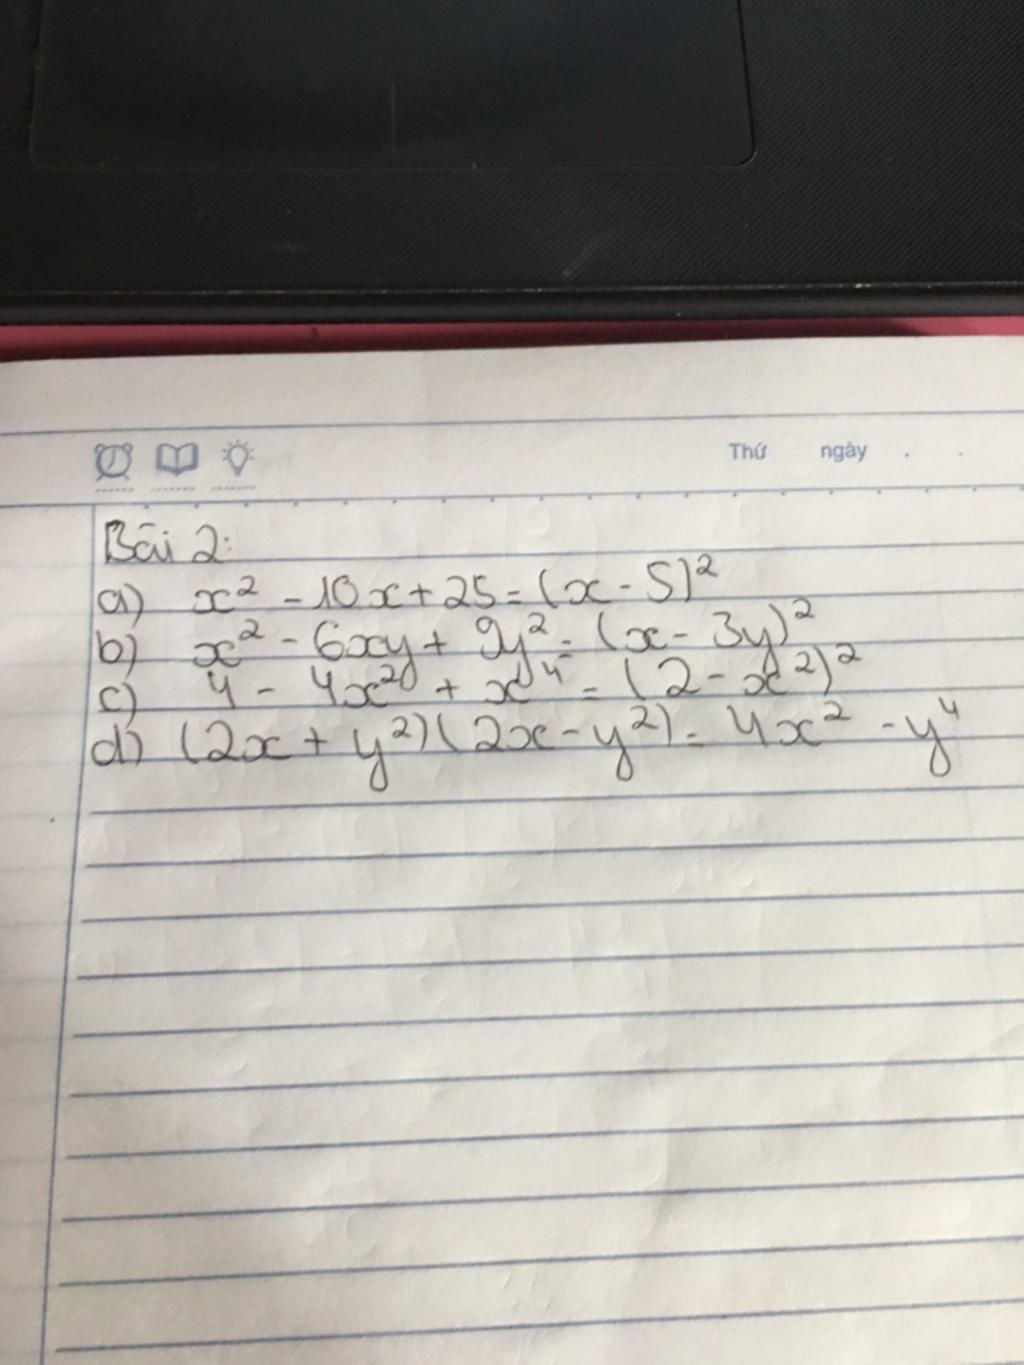 Thứ ngày . .
Bài 2:
a) x² - 10x + 25 = (x - 5)²
b) x² - 6xy + 9y² = (x - 3y)²
c) 4 - 4x² + x⁴ = (2 - x²)²
d) (2x + y²)(2x - y²) = 4x² - y⁴